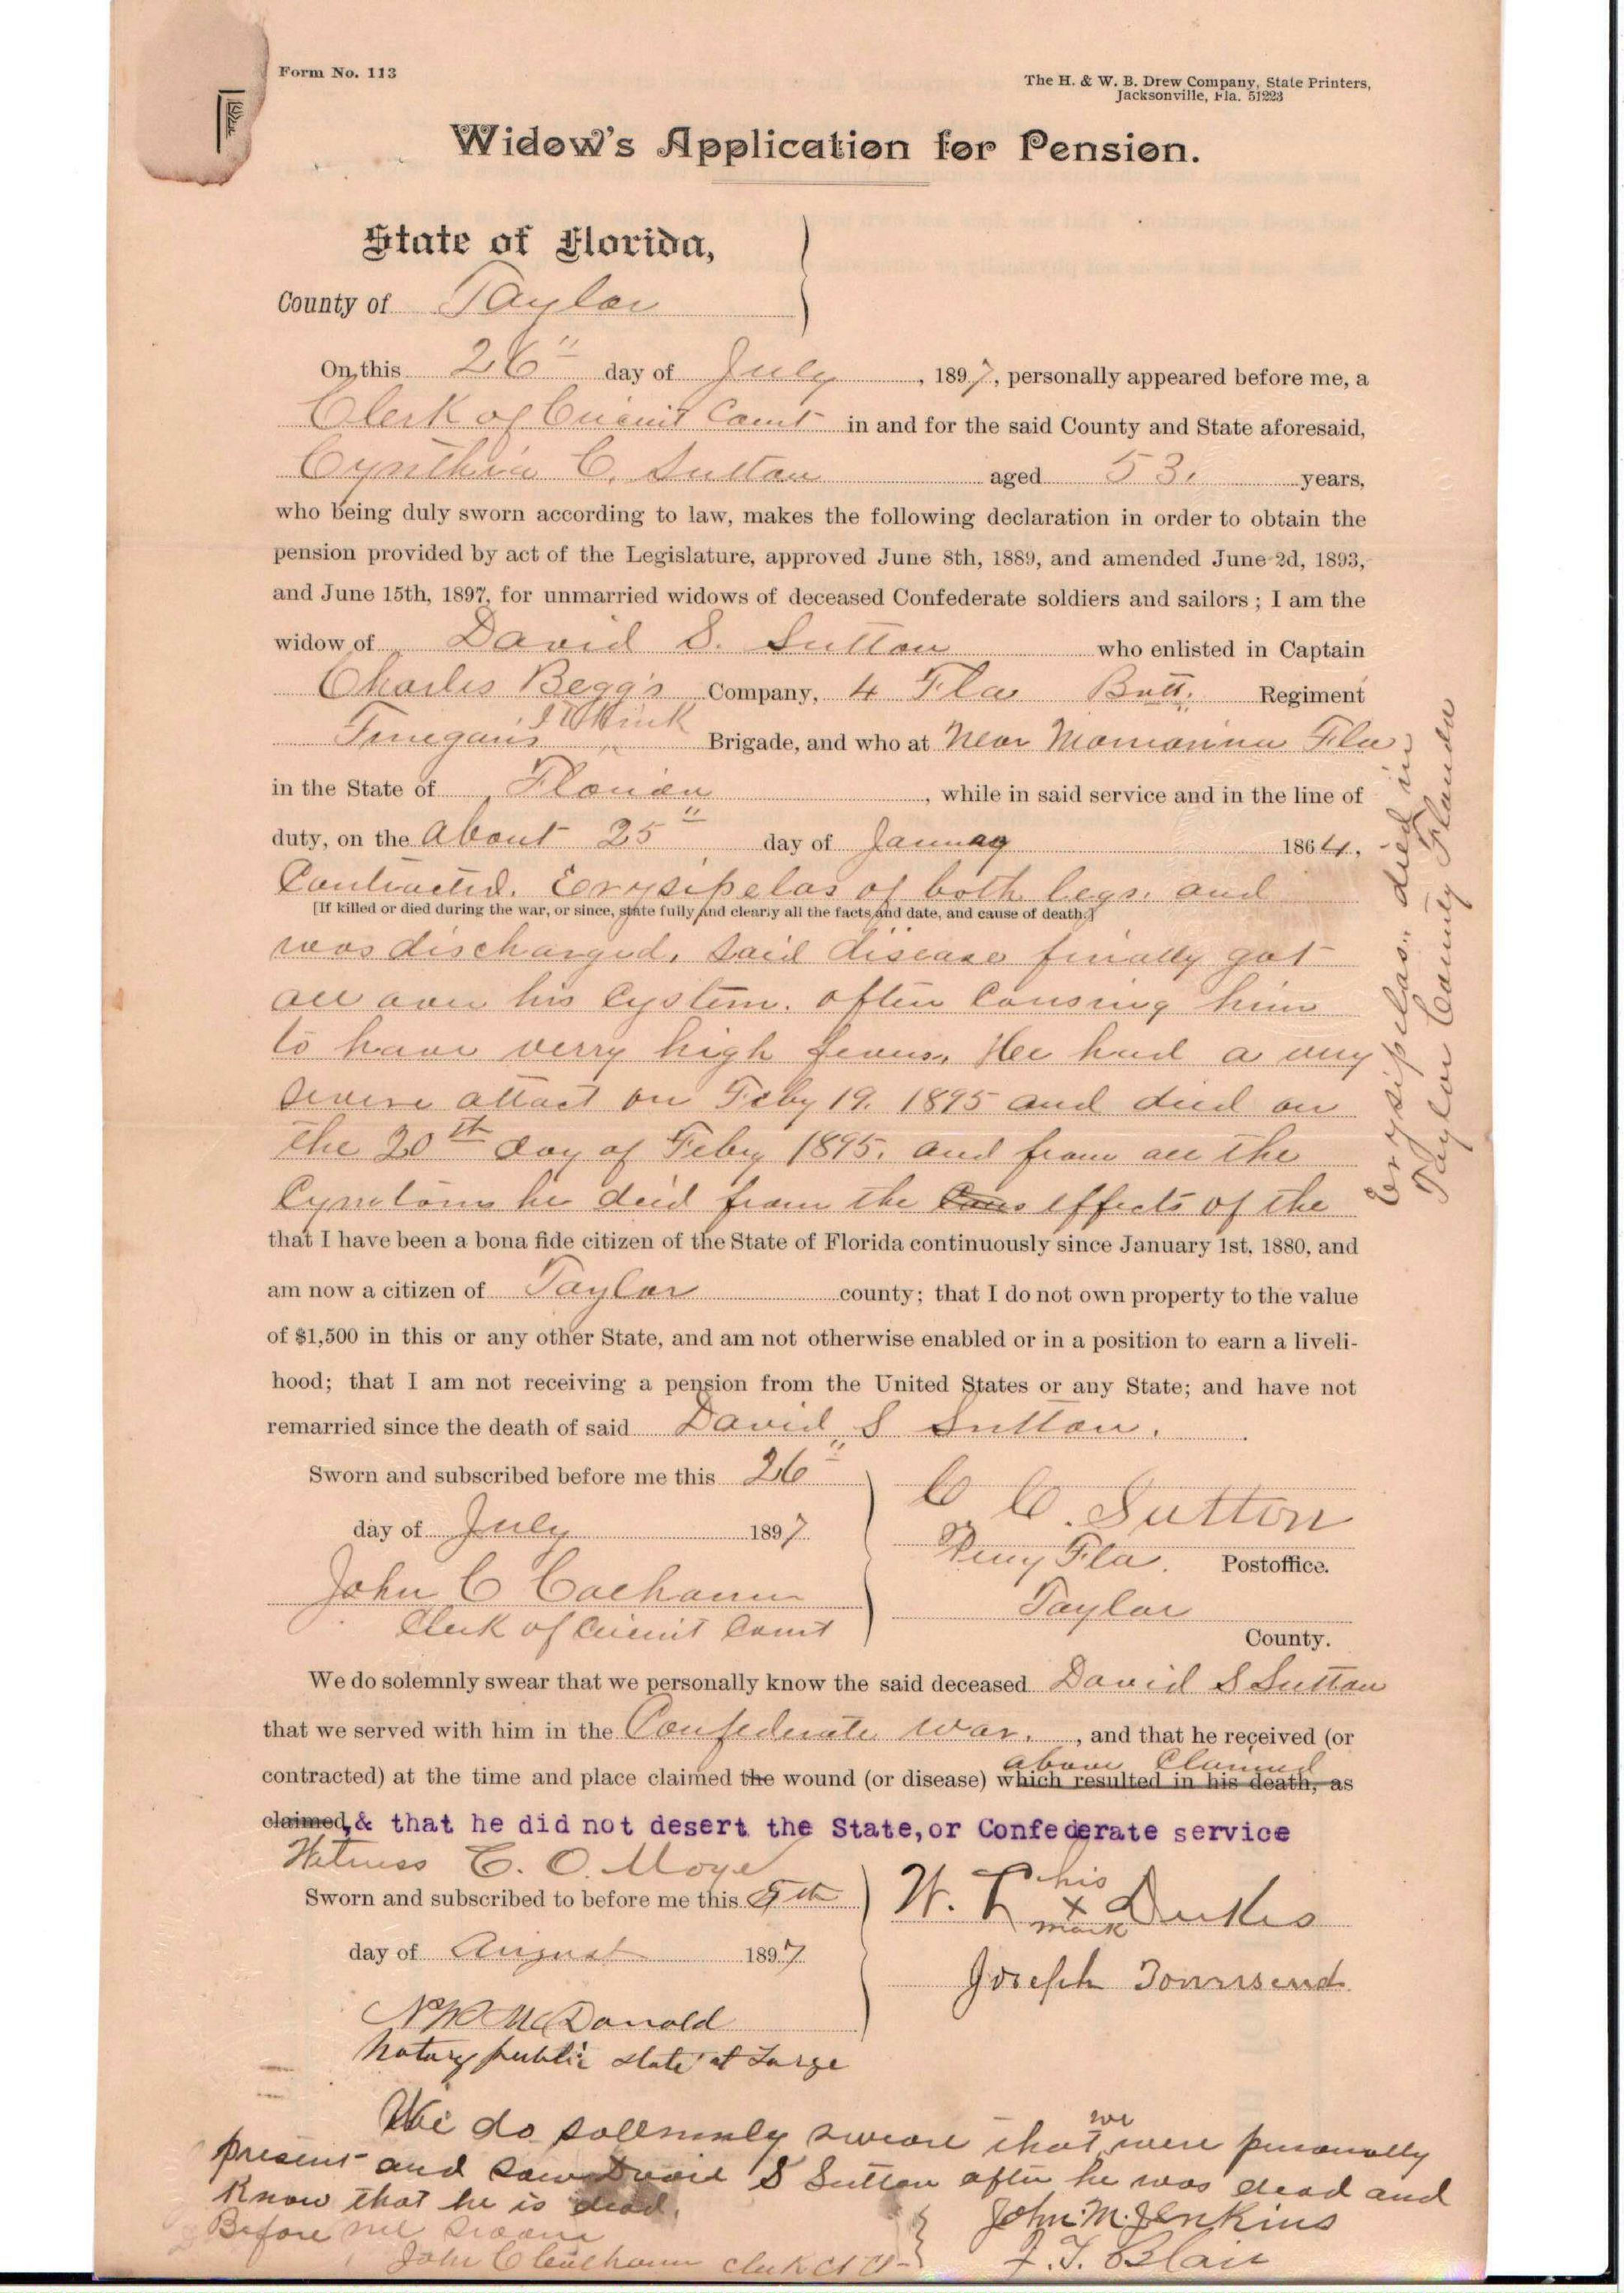 Form No. 113
The H. & W. B. Drew Company, State Printers,
Jacksonville, Fla. 51223
Widow's Application for Pension.
State of Florida,
County of Taylor
On this 26" day of July, 1897, personally appeared before me, a
Clerk of Circuit Court in and for the said County and State aforesaid,
Cynthia C. Sutton aged 53. years,
who being duly sworn according to law, makes the following declaration in order to obtain the
pension provided by act of the Legislature, approved June 8th, 1889, and amended June 2d, 1893,
and June 15th, 1897, for unmarried widows of deceased Confederate soldiers and sailors; I am the
widow of David S. Sutton who enlisted in Captain
Charles Begg's Company, 4 Fla Batt. Regiment
Finegan's Brigade, and who at Near Marianna Fla
in the State of Florida, while in said service and in the line of
duty, on the About 25" day of January 1864,
Contracted. Erysipelas of both legs. and
[If killed or died during the war, or since, state fully and clearly all the facts and date, and cause of death.]
was discharged. Said disease finally got
all over his Cystem. often Causing him
to have verry high fevers. He had a very
severe attact on Feby 19. 1895 and died on
the 20th day of Feby 1895. and from all the
Cymtoms he died from the effects of the
Erysipelas. died in
Taylor County Florida
that I have been a bona fide citizen of the State of Florida continuously since January 1st, 1880, and
am now a citizen of Taylor county; that I do not own property to the value
of $1,500 in this or any other State, and am not otherwise enabled or in a position to earn a liveli-
hood; that I am not receiving a pension from the United States or any State; and have not
remarried since the death of said David S Sutton.
Sworn and subscribed before me this 26"
day of July 1897
John C Calhoun
Clerk of Circuit Court
C C. Sutton
Perry Fla. Postoffice.
Taylor
County.
We do solemnly swear that we personally know the said deceased David S Sutton
that we served with him in the Confederate war., and that he received (or
above Claimed
contracted) at the time and place claimed the wound (or disease) which resulted in his death, as
claimed, & that he did not desert the State, or Confederate service
Witness C. O. Moye
Sworn and subscribed to before me this 5th
day of August 1897
N. W. McDonald
Notary public state at Large
his
W. T. x Dukes
mark
Joseph Townsend
We do sollemnly sweare that we were personally
present and saw David S Sutton after he was dead and
Know that he is dead.
Before me sworn
John C Calhoun clerk Ct Ct
John M. Jenkins
F. T. Blair